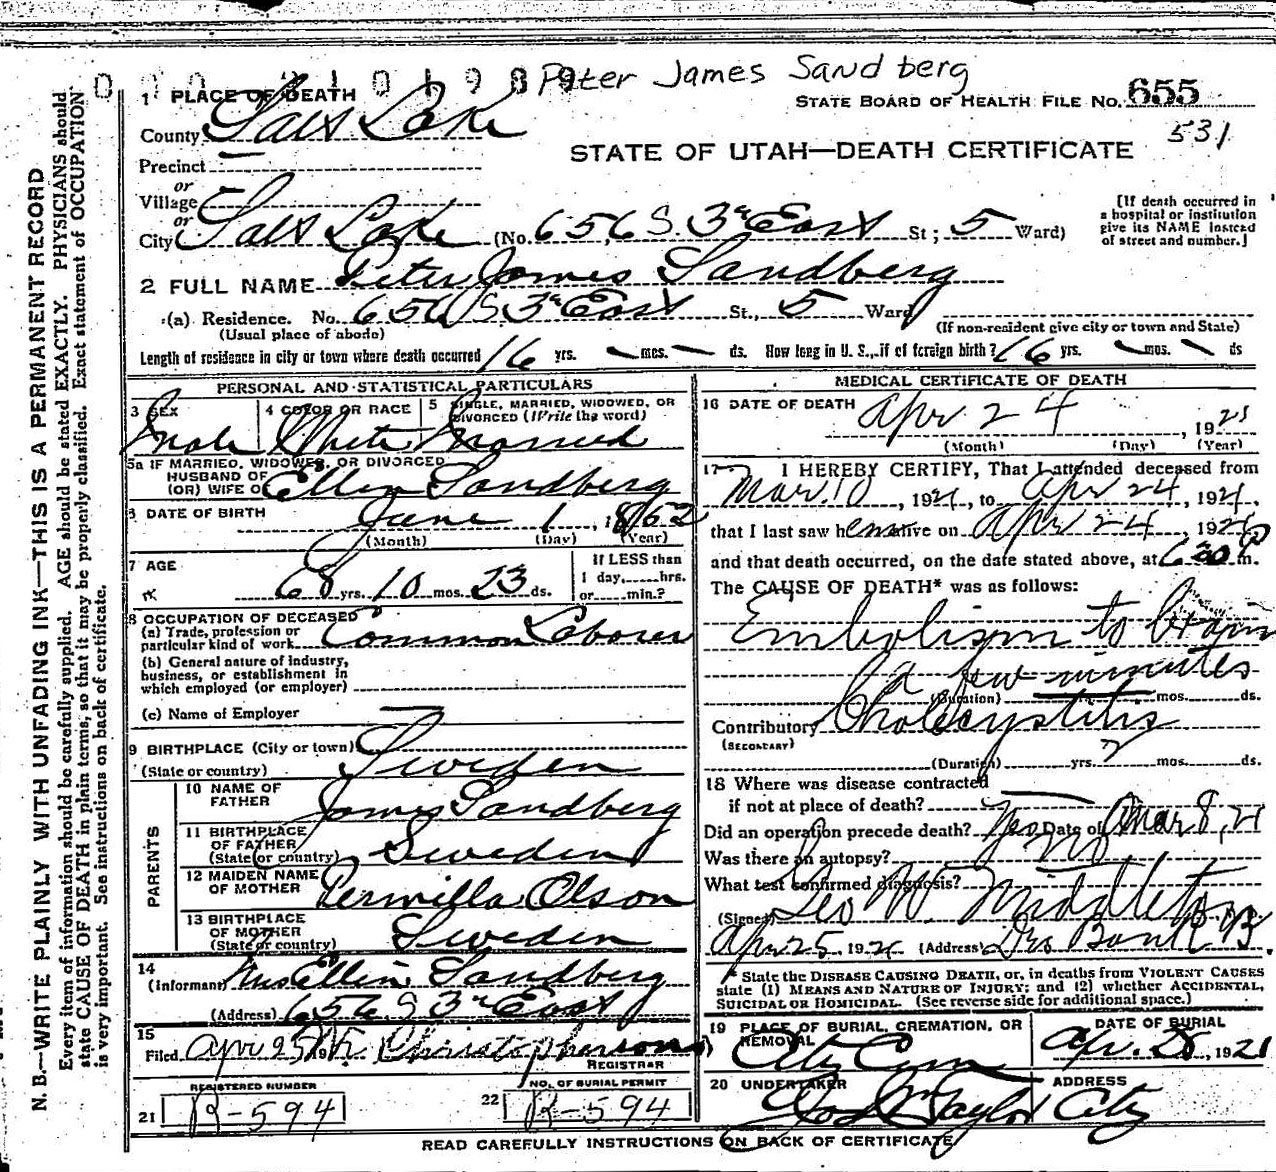 Peter James Sandberg
1 PLACE OF DEATH
STATE BOARD OF HEALTH FILE No. 655
531
County Salt Lake
STATE OF UTAH—DEATH CERTIFICATE
Precinct
or
Village
or
City Salt Lake (No. 656 S. 3rd East St; 5 Ward)
[If death occurred in a hospital or institution give its NAME instead of street and number.]
2 FULL NAME Peter James Sandberg
(a) Residence. No. 656 S 3rd East St., 5 Ward
(Usual place of abode) (If non-resident give city or town and State)
Length of residence in city or town where death occurred 16 yrs. — mos. — ds. How long in U. S., if of foreign birth? 16 yrs. — mos. — ds
PERSONAL AND STATISTICAL PARTICULARS
3 SEX 4 COLOR OR RACE 5 SINGLE, MARRIED, WIDOWED, OR DIVORCED (Write the word)
Male White Married
5a IF MARRIED, WIDOWED, OR DIVORCED
HUSBAND OF
(OR) WIFE OF Ellen Sandberg
6 DATE OF BIRTH June 1, 1852
(Month) (Day) (Year)
7 AGE If LESS than
1 day,......hrs.
68 yrs. 10 mos. 23 ds. or......min.?
8 OCCUPATION OF DECEASED
(a) Trade, profession or
particular kind of work Common Laborer
(b) General nature of industry,
business, or establishment in
which employed (or employer)
(c) Name of Employer —
9 BIRTHPLACE (City or town)
(State or country) Sweden
PARENTS
10 NAME OF FATHER James Sandberg
11 BIRTHPLACE OF FATHER (State or country) Sweden
12 MAIDEN NAME OF MOTHER Permilla Olson
13 BIRTHPLACE OF MOTHER (State or country) Sweden
14
(Informant) Mrs Ellen Sandberg
(Address) 656 S 3rd East
15
Filed Apr 25 Christopherson
REGISTRAR
REGISTERED NUMBER NO. OF BURIAL PERMIT
21 R-594 22 R-594
MEDICAL CERTIFICATE OF DEATH
16 DATE OF DEATH Apr 24, 1921
(Month) (Day) (Year)
17 I HEREBY CERTIFY, That I attended deceased from
Mar. 10, 1921, to Apr 24, 1921,
that I last saw him alive on Apr 24, 1921
and that death occurred, on the date stated above, at 6 30 P m.
The CAUSE OF DEATH* was as follows:
Embolism to brain
a few minutes
(Duration) mos. ds.
Contributory Cholecystitis
(SECONDARY)
(Duration) yrs. ? mos. ds.
18 Where was disease contracted
if not at place of death?
Did an operation precede death? Yes Date of Mar 8, 21
Was there an autopsy? No
What test confirmed diagnosis?
(Signed) Geo W. Middleton
Apr 25, 1921 (Address)
* State the DISEASE CAUSING DEATH, or, in deaths from VIOLENT CAUSES
state (1) MEANS AND NATURE OF INJURY; and (2) whether ACCIDENTAL,
SUICIDAL OR HOMICIDAL. (See reverse side for additional space.)
19 PLACE OF BURIAL, CREMATION, OR REMOVAL DATE OF BURIAL
City Cem Apr. 28, 1921
20 UNDERTAKER ADDRESS
Taylor City
READ CAREFULLY INSTRUCTIONS ON BACK OF CERTIFICATE
N. B.—WRITE PLAINLY WITH UNFADING INK—THIS IS A PERMANENT RECORD
Every item of information should be carefully supplied. AGE should be stated EXACTLY. PHYSICIANS should
state CAUSE OF DEATH in plain terms, so that it may be properly classified. Exact statement of OCCUPATION
is very important. See instructions on back of certificate.